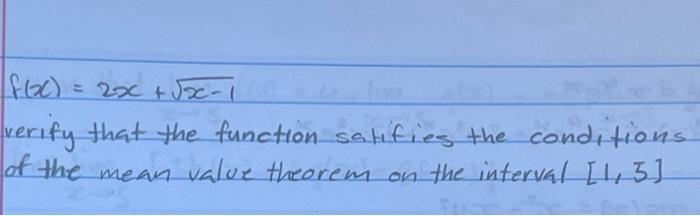 f(x) = 2x + √x-1
verify that the function satifies the conditions
of the mean value theorem on the interval [1, 5]